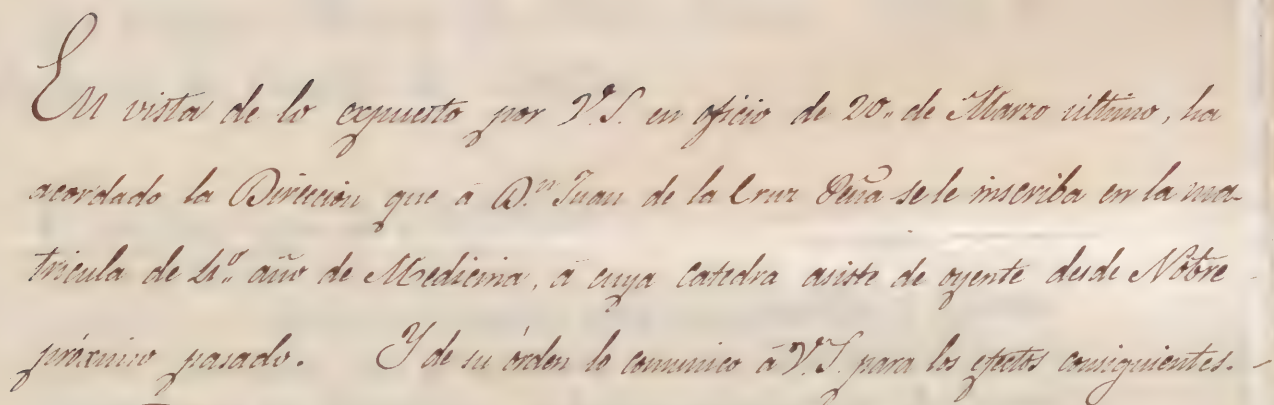 En vista de lo expuesto por V.S. en oficio de 20,, de Marzo último, ha
acordado la Direccion que á D.n Juan de la Cruz Peña se le inscriba en la ma-
tricula de 4.º año de Medicina, á cuya catedra asiste de oyente desde Nobre
próximo pasado. Y de su órden lo comunico á V.S. para los efectos consiguientes.-